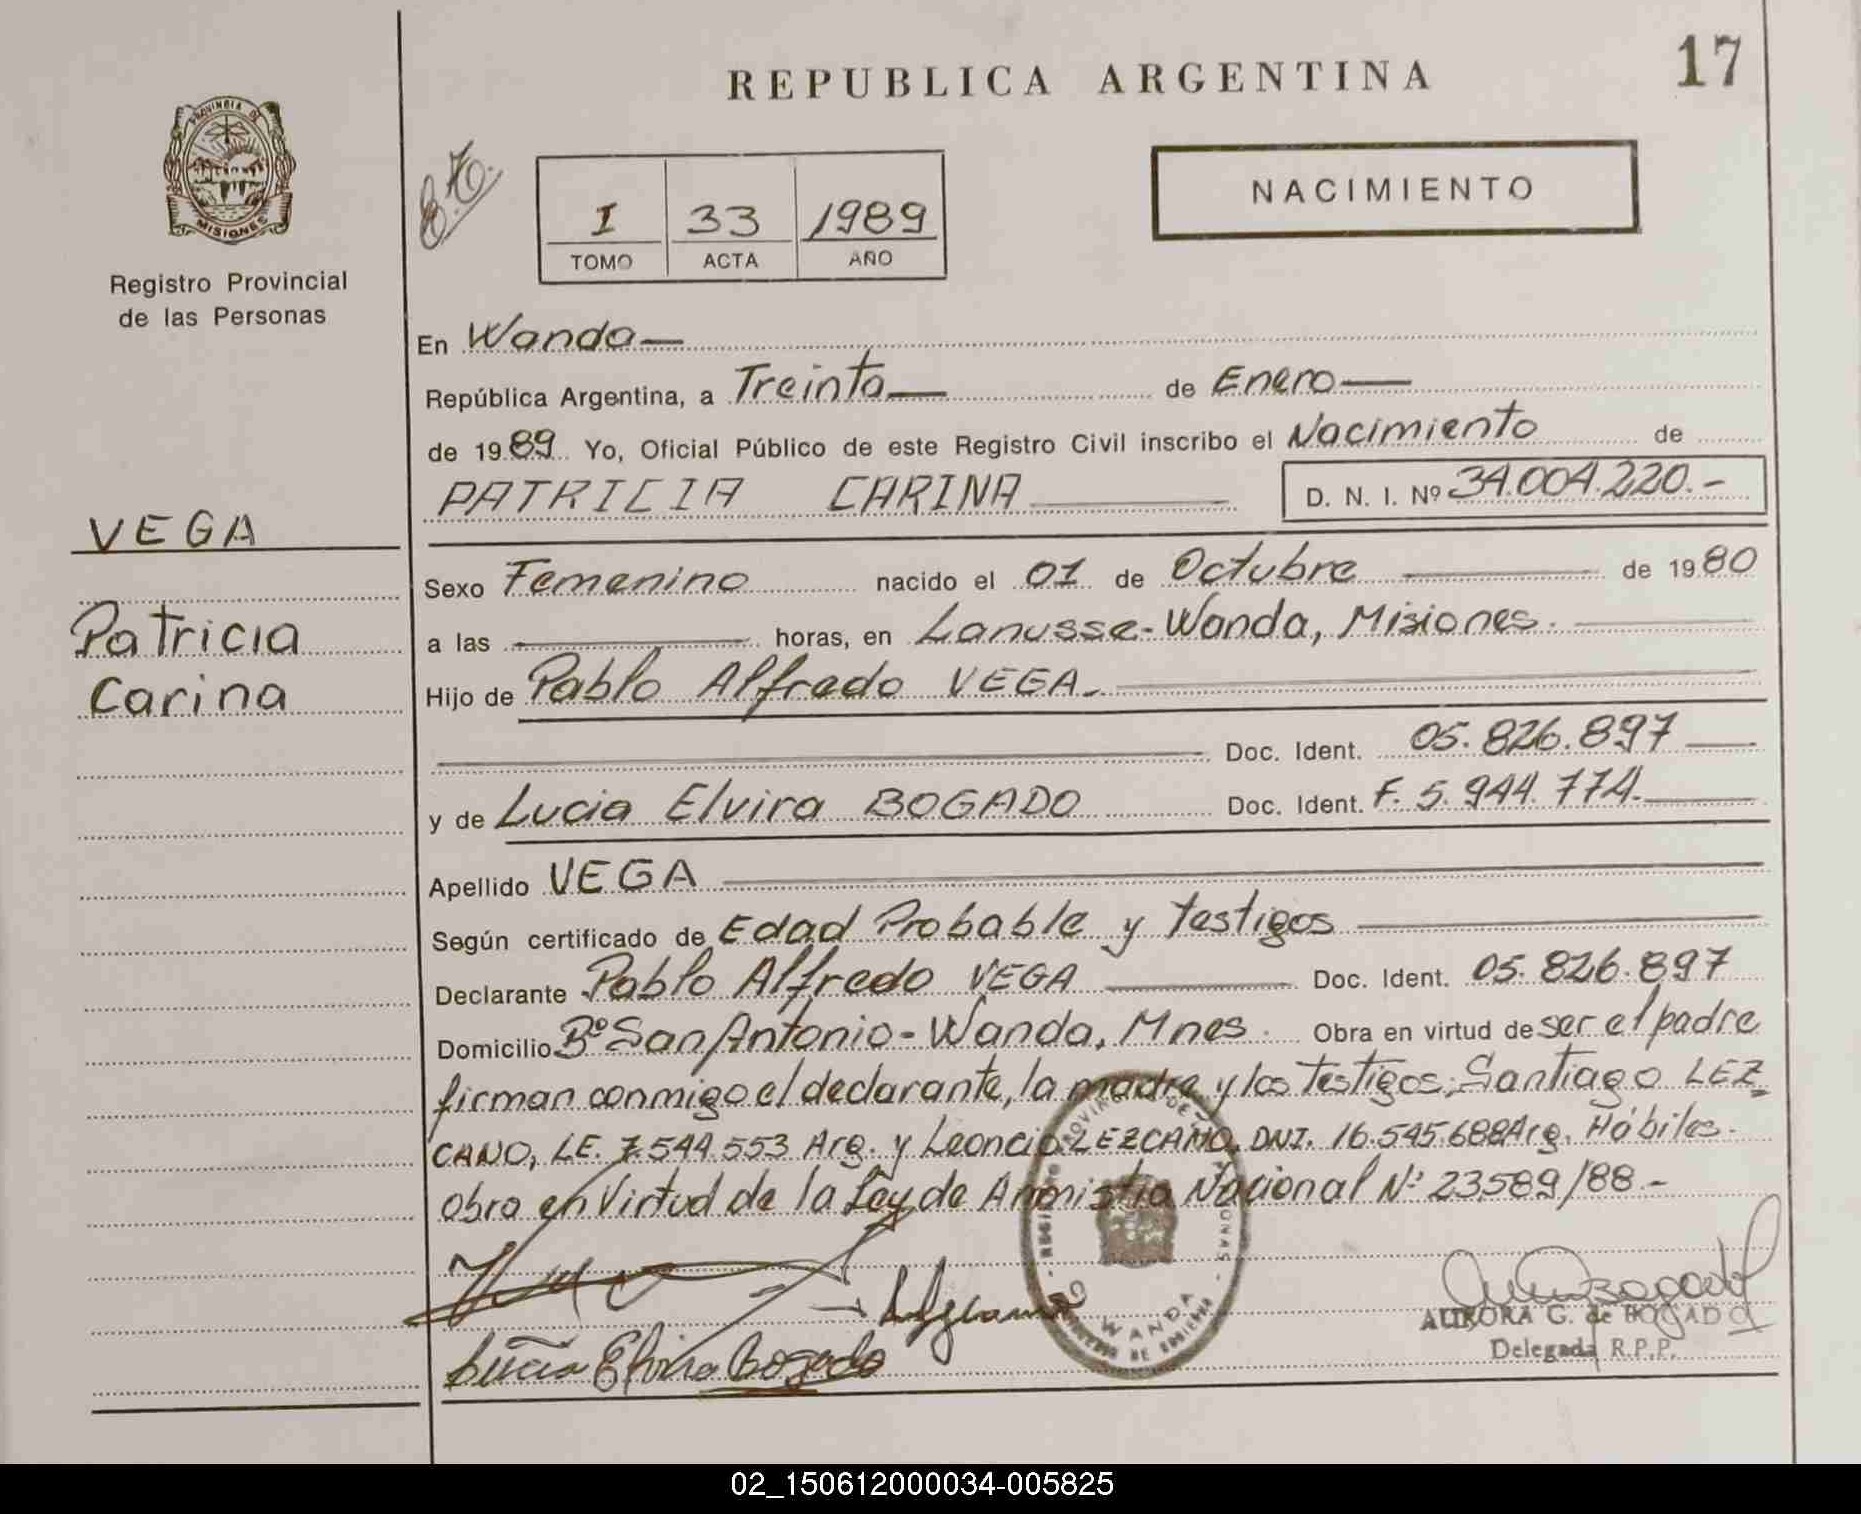 REPUBLICA ARGENTINA
17
PROVINCIA DE
MISIONES
Registro Provincial
de las Personas
I 33 1989
TOMO ACTA AÑO
NACIMIENTO
En Wanda
República Argentina, a Treinta de Enero
de 1989 Yo, Oficial Público de este Registro Civil inscribo el Nacimiento de
PATRICIA CARINA D. N. I. Nº 34.004.220.-
VEGA
Patricia
Carina
Sexo Femenino nacido el 01 de Octubre de 1980
a las horas, en Lanusse-Wanda, Misiones.
Hijo de Pablo Alfredo VEGA.
Doc. Ident. 05.826.897
y de Lucia Elvira BOGADO Doc. Ident. F. 5.944.774.
Apellido VEGA
Según certificado de Edad Probable y testigos
Declarante Pablo Alfredo VEGA Doc. Ident. 05.826.897
Domicilio Bº San Antonio-Wanda, Mnes. Obra en virtud de ser el padre
firman conmigo el declarante, la madre y los testigos; Santiago LEZ
CANO, LE. 7.544.553 Arg. y Leoncio LEZCANO, DNI. 16.545.688 Arg. Hábiles.
Obra en Virtud de la Ley de Amnistia Nacional Nº 23589/88.-
WANDA
Lucia Elvira Bogado
AURORA G. de BOGADO
Delegada R.P.P.
02_150612000034-005825